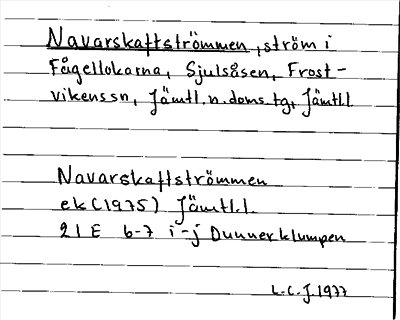 Navarskaftströmmen, ström i
Fågellokarna, Sjulsåsen, Frost-
vikens sn, Jämtl. n. doms. tg, Jämtl.l.
Navarskaftströmmen
ek (1975) Jämtl.l.
21 E 6-7 i-j Dunnerklumpen
L.C.J. 1977